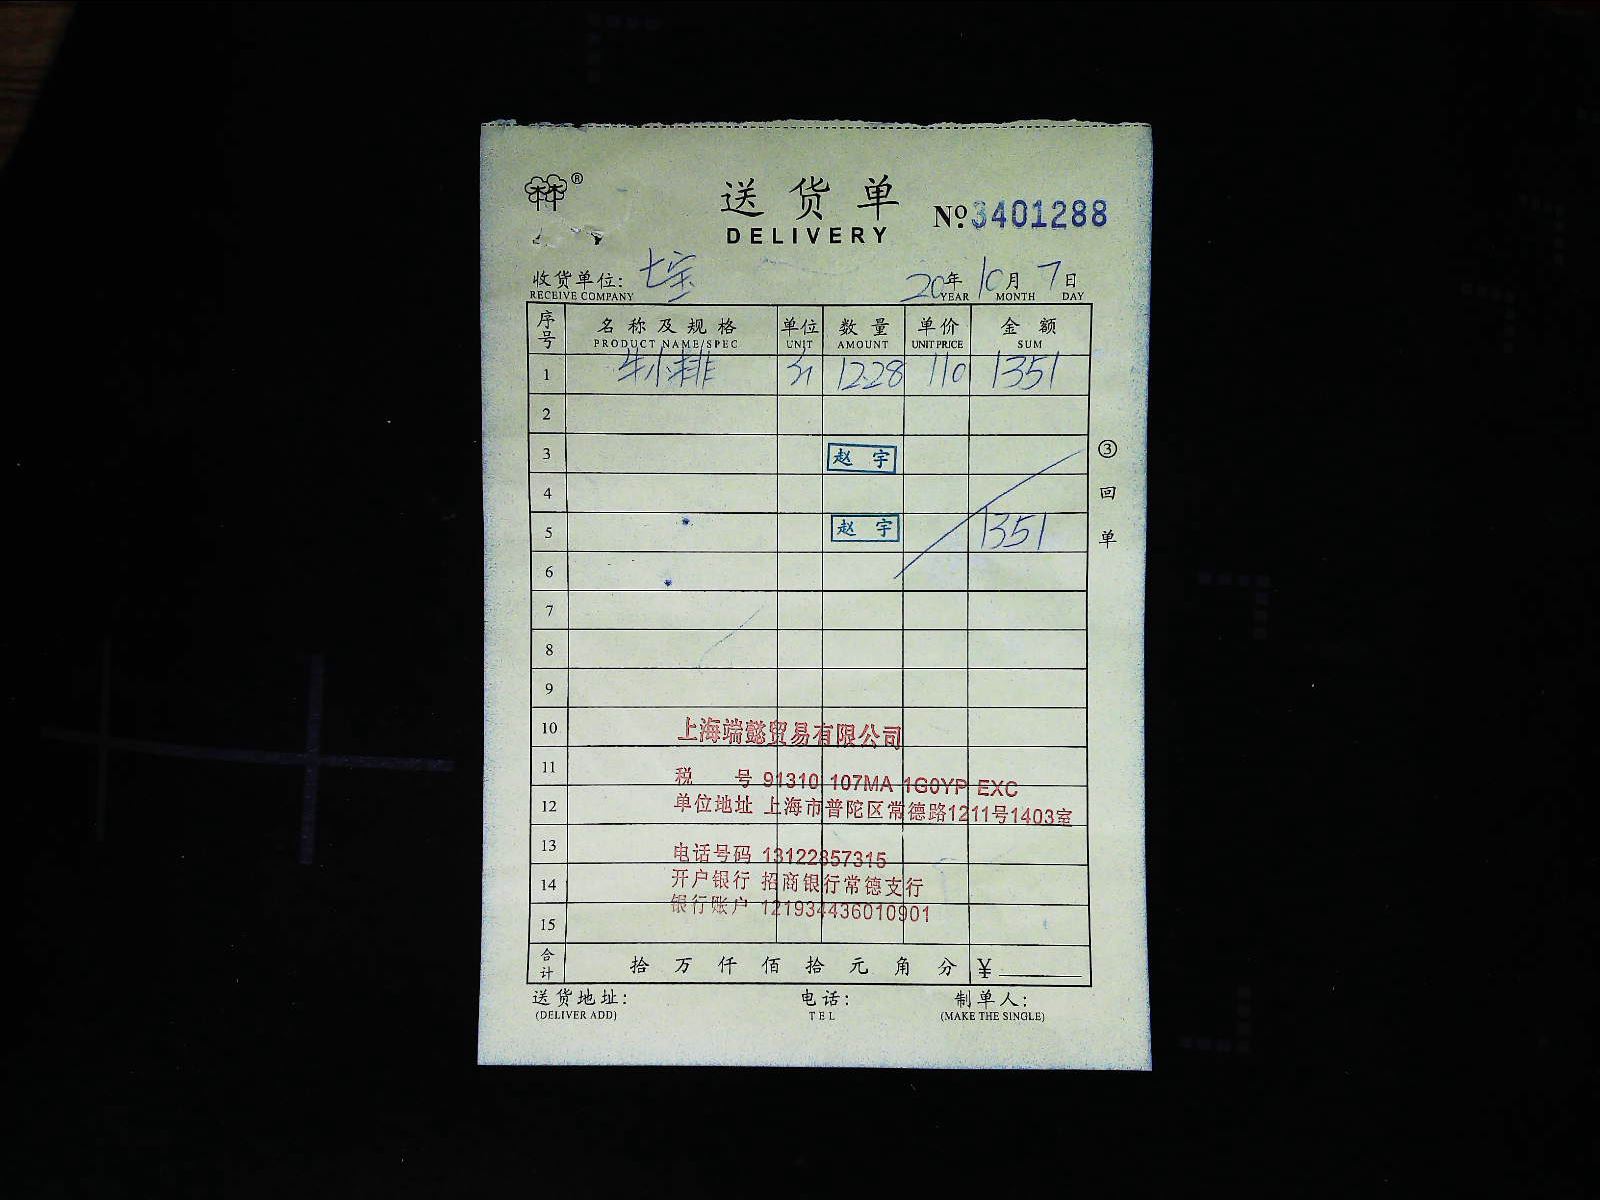 ®
送货单 No.3401288
DELIVERY
收货单位: 七宝 20年10月7日
RECEIVE COMPANY YEAR MONTH DAY
序号 名称及规格 单位 数量 单价 金额
PRODUCT NAME/SPEC UNIT AMOUNT UNIT PRICE SUM
1 牛小排 12.28 110 1351
2
3 赵宇
4
5 赵宇 1351
6
7
8
9
10
11
12
13
14
15
③回单
上海端懿贸易有限公司
税号 91310 107MA 1G0YP EXC
单位地址 上海市普陀区常德路1211号1403室
电话号码 13122857315
开户银行 招商银行常德支行
银行账户 121934436010901
合计 拾万仟佰拾元角分 ¥
送货地址: 电话: 制单人:
(DELIVER ADD) TEL (MAKE THE SINGLE)